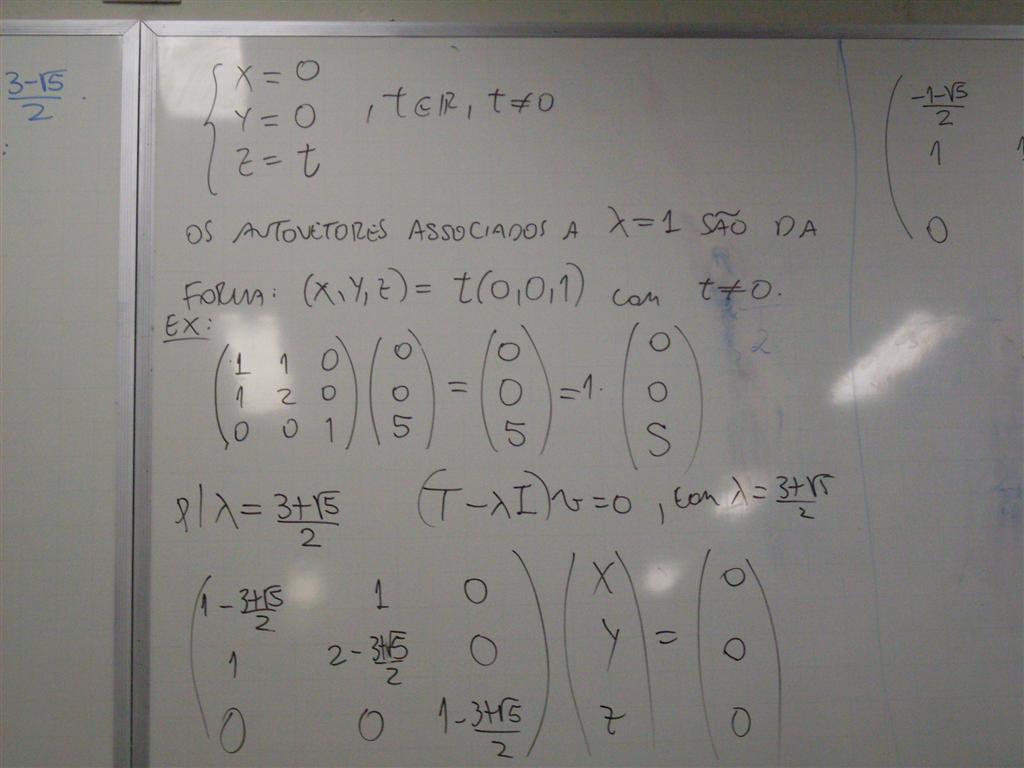 3-√5/2 .
:
{ X = 0
Y = 0 , t ∈ ℝ, t ≠ 0
Z = t
OS AUTOVETORES ASSOCIADOS A λ = 1 SÃO DA
FORMA: (X, Y, Z) = t(0,0,1) com t ≠ 0.
EX:
(1 1 0) (0) (0) (0)
(1 2 0) (0) = (0) = 1· (0)
(0 0 1) (5) (5) (5)
p/ λ = 3+√5/2 (T - λI)v = 0 , com λ = 3+√5/2
(1 - 3+√5/2 1 0) (X) (0)
(1 2 - 3+√5/2 0) (Y) = (0)
(0 0 1 - 3+√5/2) (Z) (0)
(-1-√5/2
1 1
0